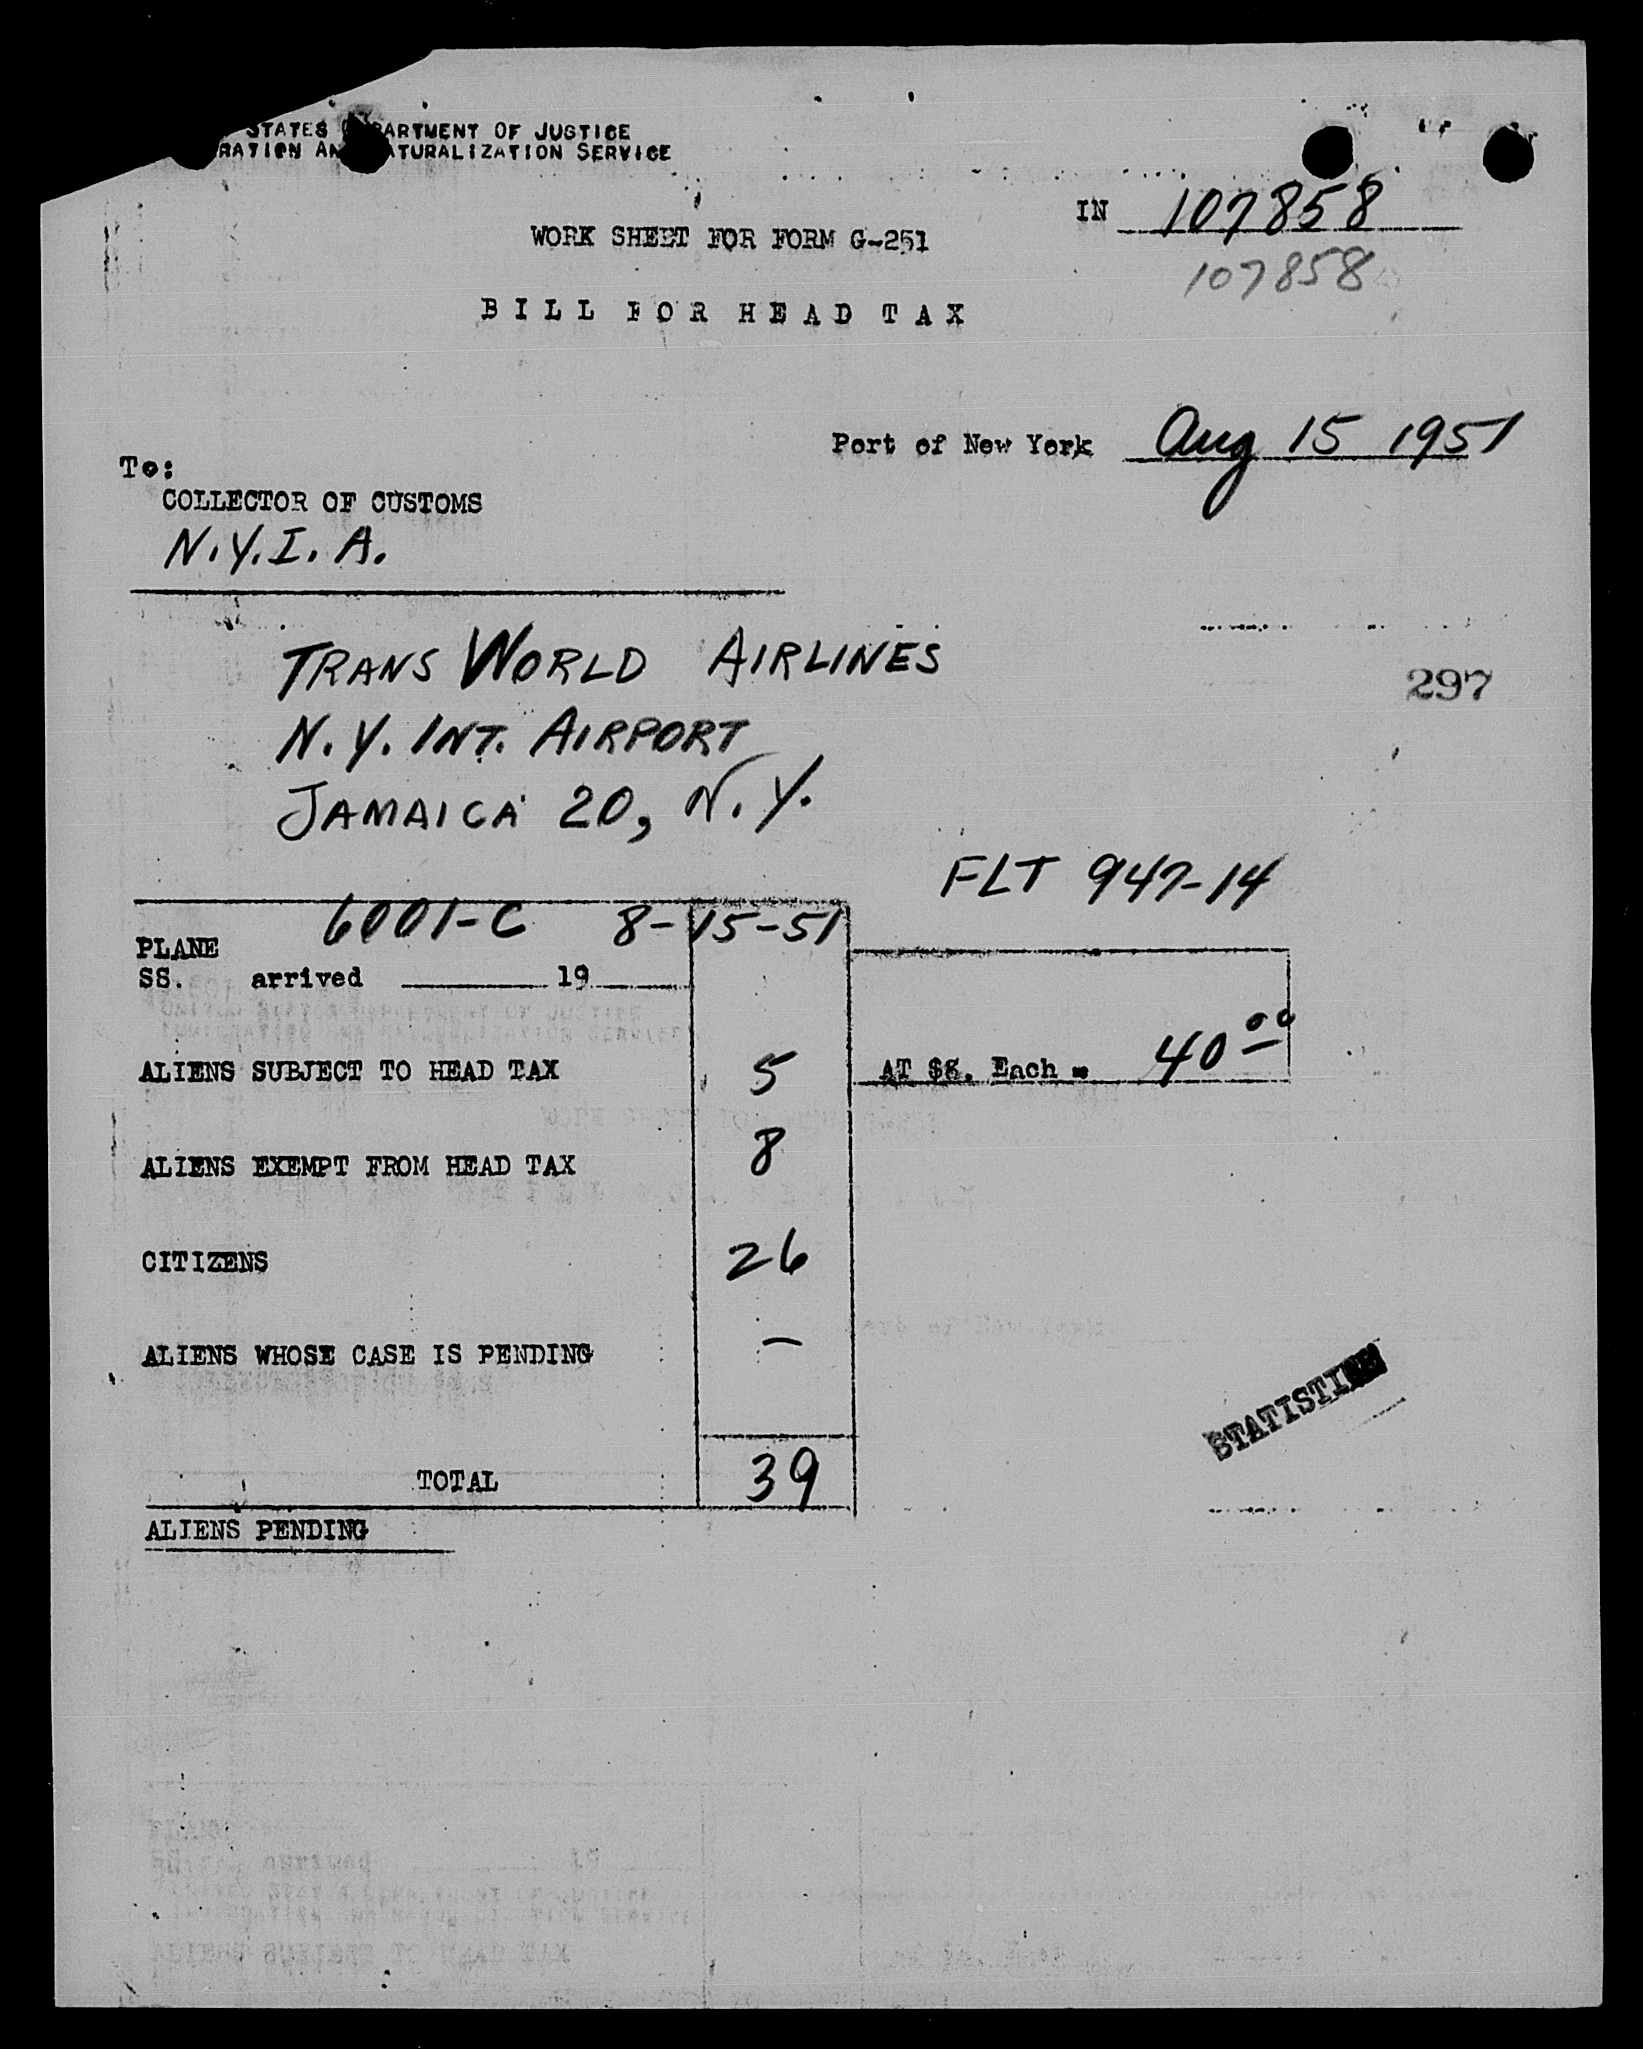 STATES DEPARTMENT OF JUSTICE
RATION AND NATURALIZATION SERVICE
IN 107858
107858
WORK SHEET FOR FORM G-251
BILL FOR HEAD TAX
Port of New York Aug 15 1951
To:
COLLECTOR OF CUSTOMS
N.Y.I.A.
TRANS WORLD AIRLINES
297
N.Y. INT. AIRPORT
JAMAICA 20, N.Y.
FLT 947-14
6001-C 8-15-51
PLANE
SS. arrived 19
ALIENS SUBJECT TO HEAD TAX 5 AT $8. Each = 40 00
ALIENS EXEMPT FROM HEAD TAX 8
CITIZENS 26
ALIENS WHOSE CASE IS PENDING —
TOTAL 39
ALIENS PENDING